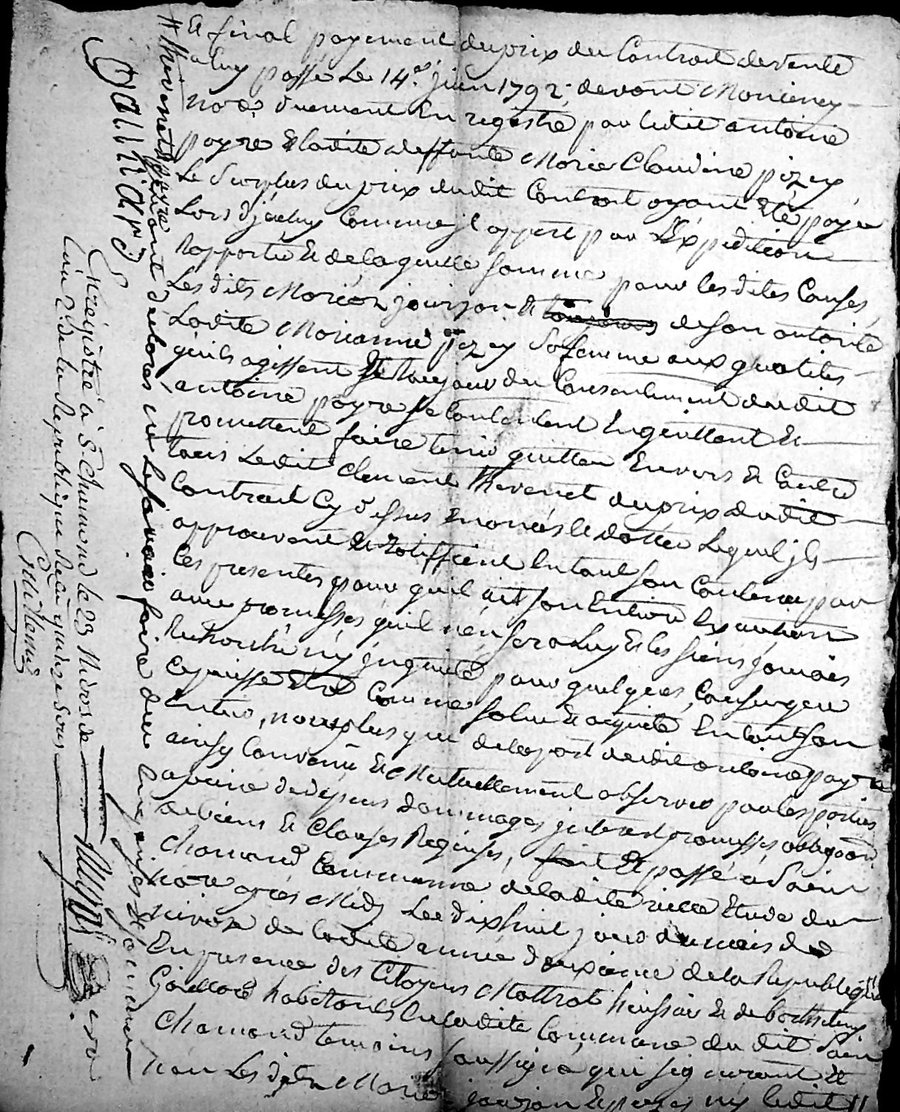 Et final payement du prix du Contrat de vente
a luy passé Le 14e. juin 1792. devant
no.re duement Enregistré par ledit antoine
payre & ladite deffunte Marie Claudine pizey
Le Surplus du prix dudit Contrat ayant eté payé
Lors d'jceluy Comme jl appert par L'Expedition
Rapportée & de laquelle somme pour les dites Causes
Les dits jourjon & de son autorité
Ladite Marianne pizey Sa femme aux qualités
qu'ils agissent & toujours du Consentement dudit
antoine payre se Contentent En quittent &
promettent faire tenir quitte Envers & Contre
tous Ledit Clement thevenet du prix dudit
Contrat Cy dessus énoncé & datté Lequel jls
approuvent & Ratiffient En tout son Contenu par
Ces presentes pour qu'il ait son Entiere Execution
avec promesses qu'il n'en sera luy & les siens jamais
Recherché ny jnquieté pour quelques Causes que
Ce puisse Etre Comme solu & acquité En tout son
Entier, non plus que de la part dudit antoine payre
ainsy Convenu & Mutuellement observer par les parties
a peine de depens dommages jnterest promesses obligaon
de biens & Clauses Requises, fait & passé a Saint
Chamond Commune de ladite ville Etude du
no.re après Midy Le dixhuit jour du mois de
nivose de ladite année deuxième de la Republique
En presence des Citoyens Mattrat huissier & de
habitants En ladite Commune du dit Sain
Chamond temoins soussignés qui signeront &
non Les dits jourjon & pizey ny ledit
thevenet payre ne le savoir faire de ce
Gallhard
Enregistré à St. Chamond le 23 Nivose
L'an 2e. de la Republique